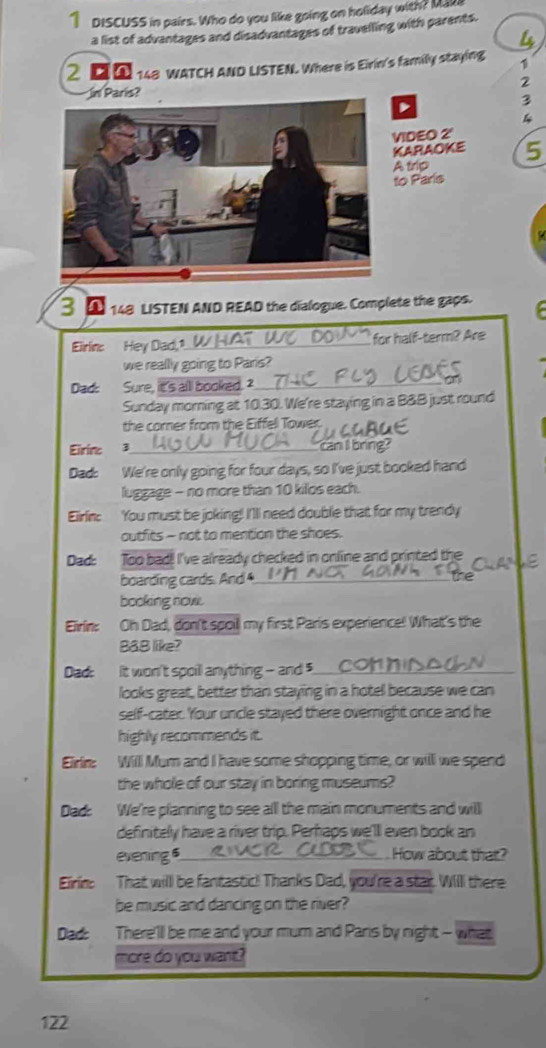 1 DISCUSS in pairs. Who do you like going on holiday with? Make
a list of advantages and disadvantages of travelling with parents.
4
2 148 WATCH AND LISTEN. Where is Eirin's family staying
in Paris?
1
2
3
4
VIDEO 2
KARAOKE
A trip
to Paris
5
3 148 LISTEN AND READ the dialogue. Complete the gaps.
Eirin: Hey Dad, 1 WHAT WE DOING for half-term? Are
we really going to Paris?
Dad: Sure, it's all booked. 2 THE FLY on
Sunday morning at 10.30. We're staying in a B&B just round
the corner from the Eiffel Tower.
Eirin: 3 HOW MUCH LUGGAGE can I bring?
Dad: We're only going for four days, so I've just booked hand
luggage – no more than 10 kilos each.
Eirin: You must be joking! I'll need double that for my trendy
outfits – not to mention the shoes.
Dad: Too bad! I've already checked in online and printed the
boarding cards. And 4 I'M NOT the
booking now.
Eirin: Oh Dad, don't spoil my first Paris experience! What's the
B&B like?
Dad: It won't spoil anything – and 5
looks great, better than staying in a hotel because we can
self-cater. Your uncle stayed there overnight once and he
highly recommends it.
Eirin: Will Mum and I have some shopping time, or will we spend
the whole of our stay in boring museums?
Dad: We're planning to see all the main monuments and will
definitely have a river trip. Perhaps we'll even book an
evening 6 RIVER . How about that?
Eirin: That will be fantastic! Thanks Dad, you're a star. Will there
be music and dancing on the river?
Dad: There'll be me and your mum and Paris by night – what
more do you want?
122